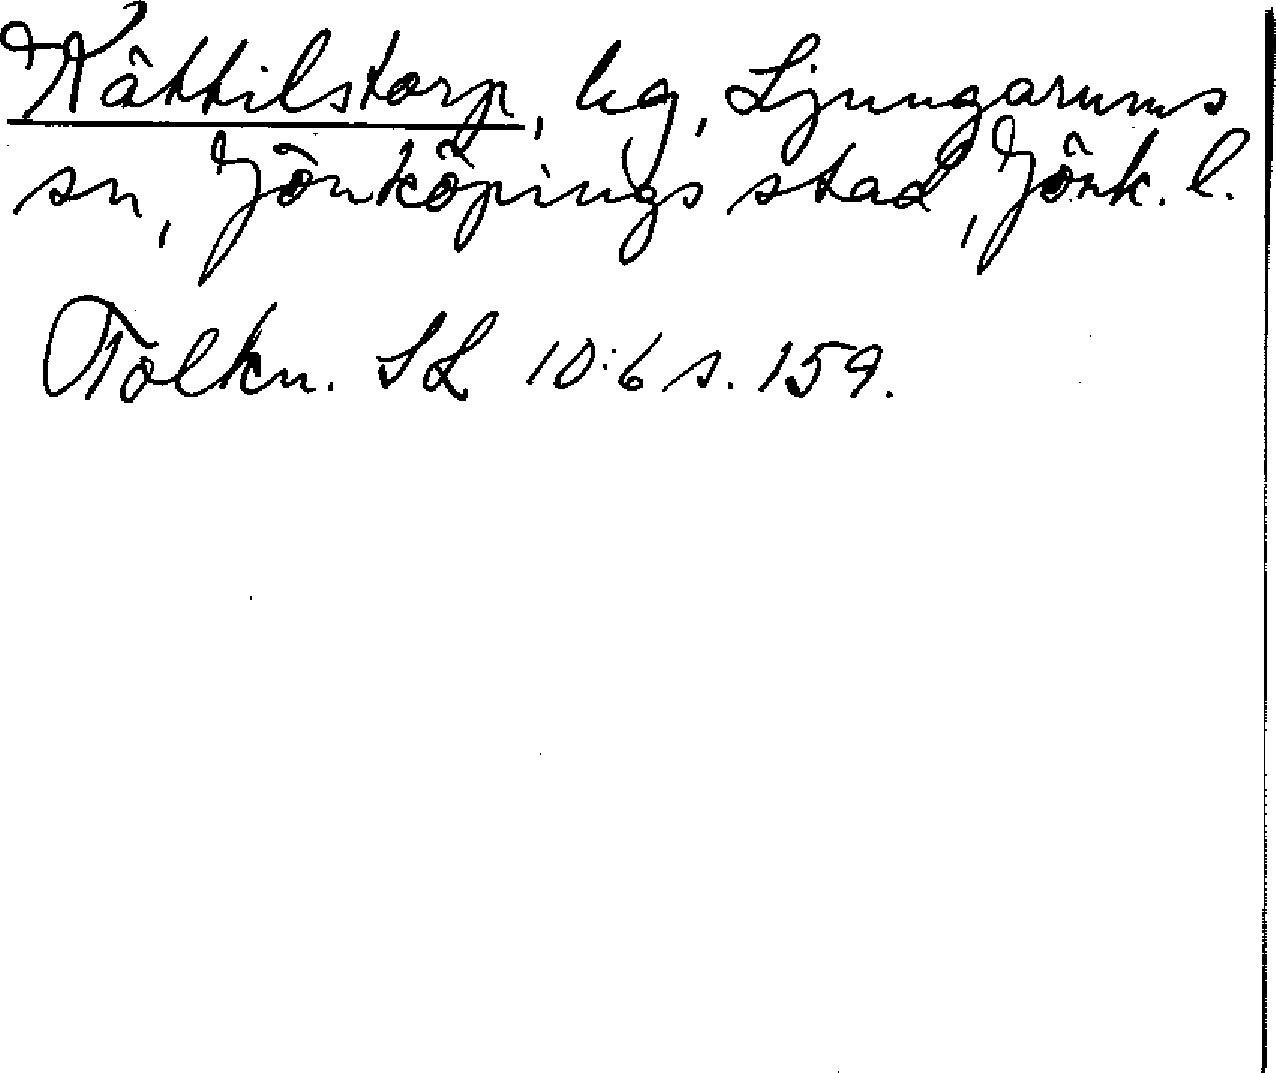 Kättilstorp, hg, Ljungarums
sn, Jönköpings stad, Jönk. l.
Tolkn. SL 10:6 s. 159.